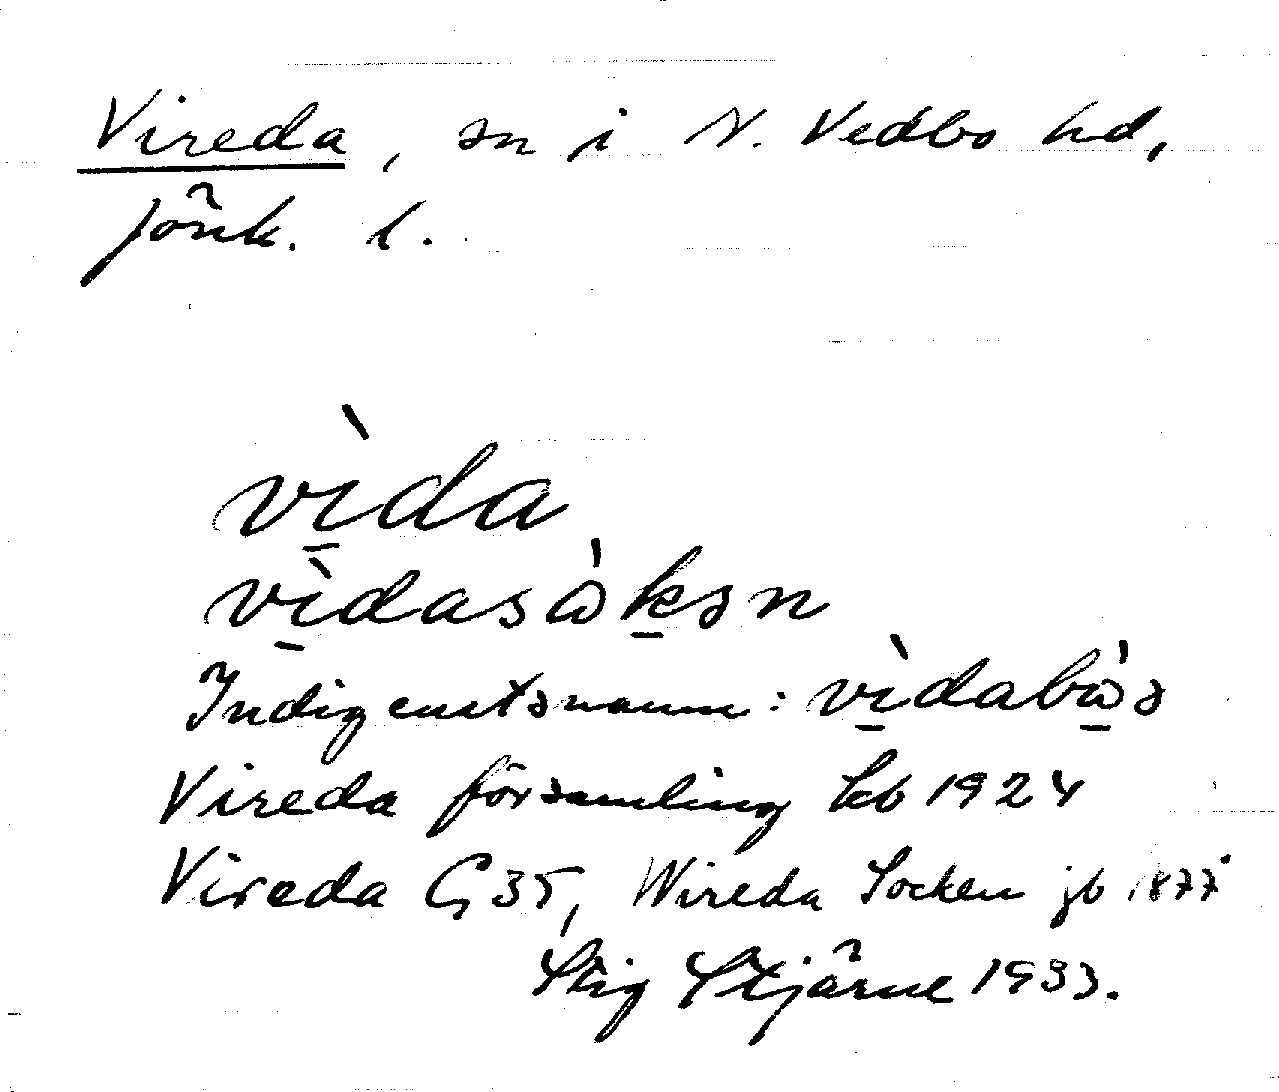 Vireda, sn i N. Vedbo hd,
Jönk. l.
vìda
vìdasòksn
Indigenatsnamn: vìdabòs
Vireda församling kb 1924
Vireda G 35, Wireda Socken jb 1877
Stig Stjärne 1933.